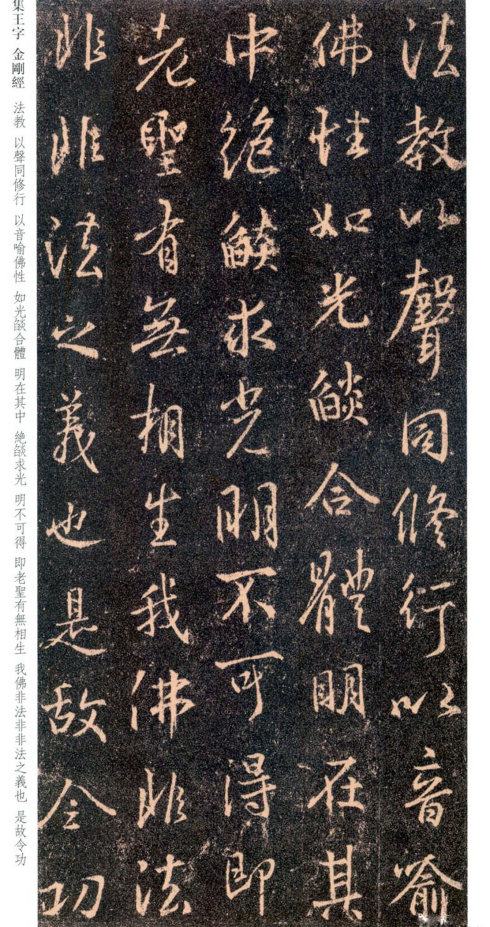 法教以聲同修行以音喻
佛性如光燄合體明在其
中絶燄求光明不可得即
老聖有無相生我佛非法
非非法之義也是故令功
集王字 金剛經 法教 以聲同修行 以音喻佛性 如光燄合體 明在其中 絶燄求光 明不可得 即老聖有無相生 我佛非法非非法之義也 是故令功